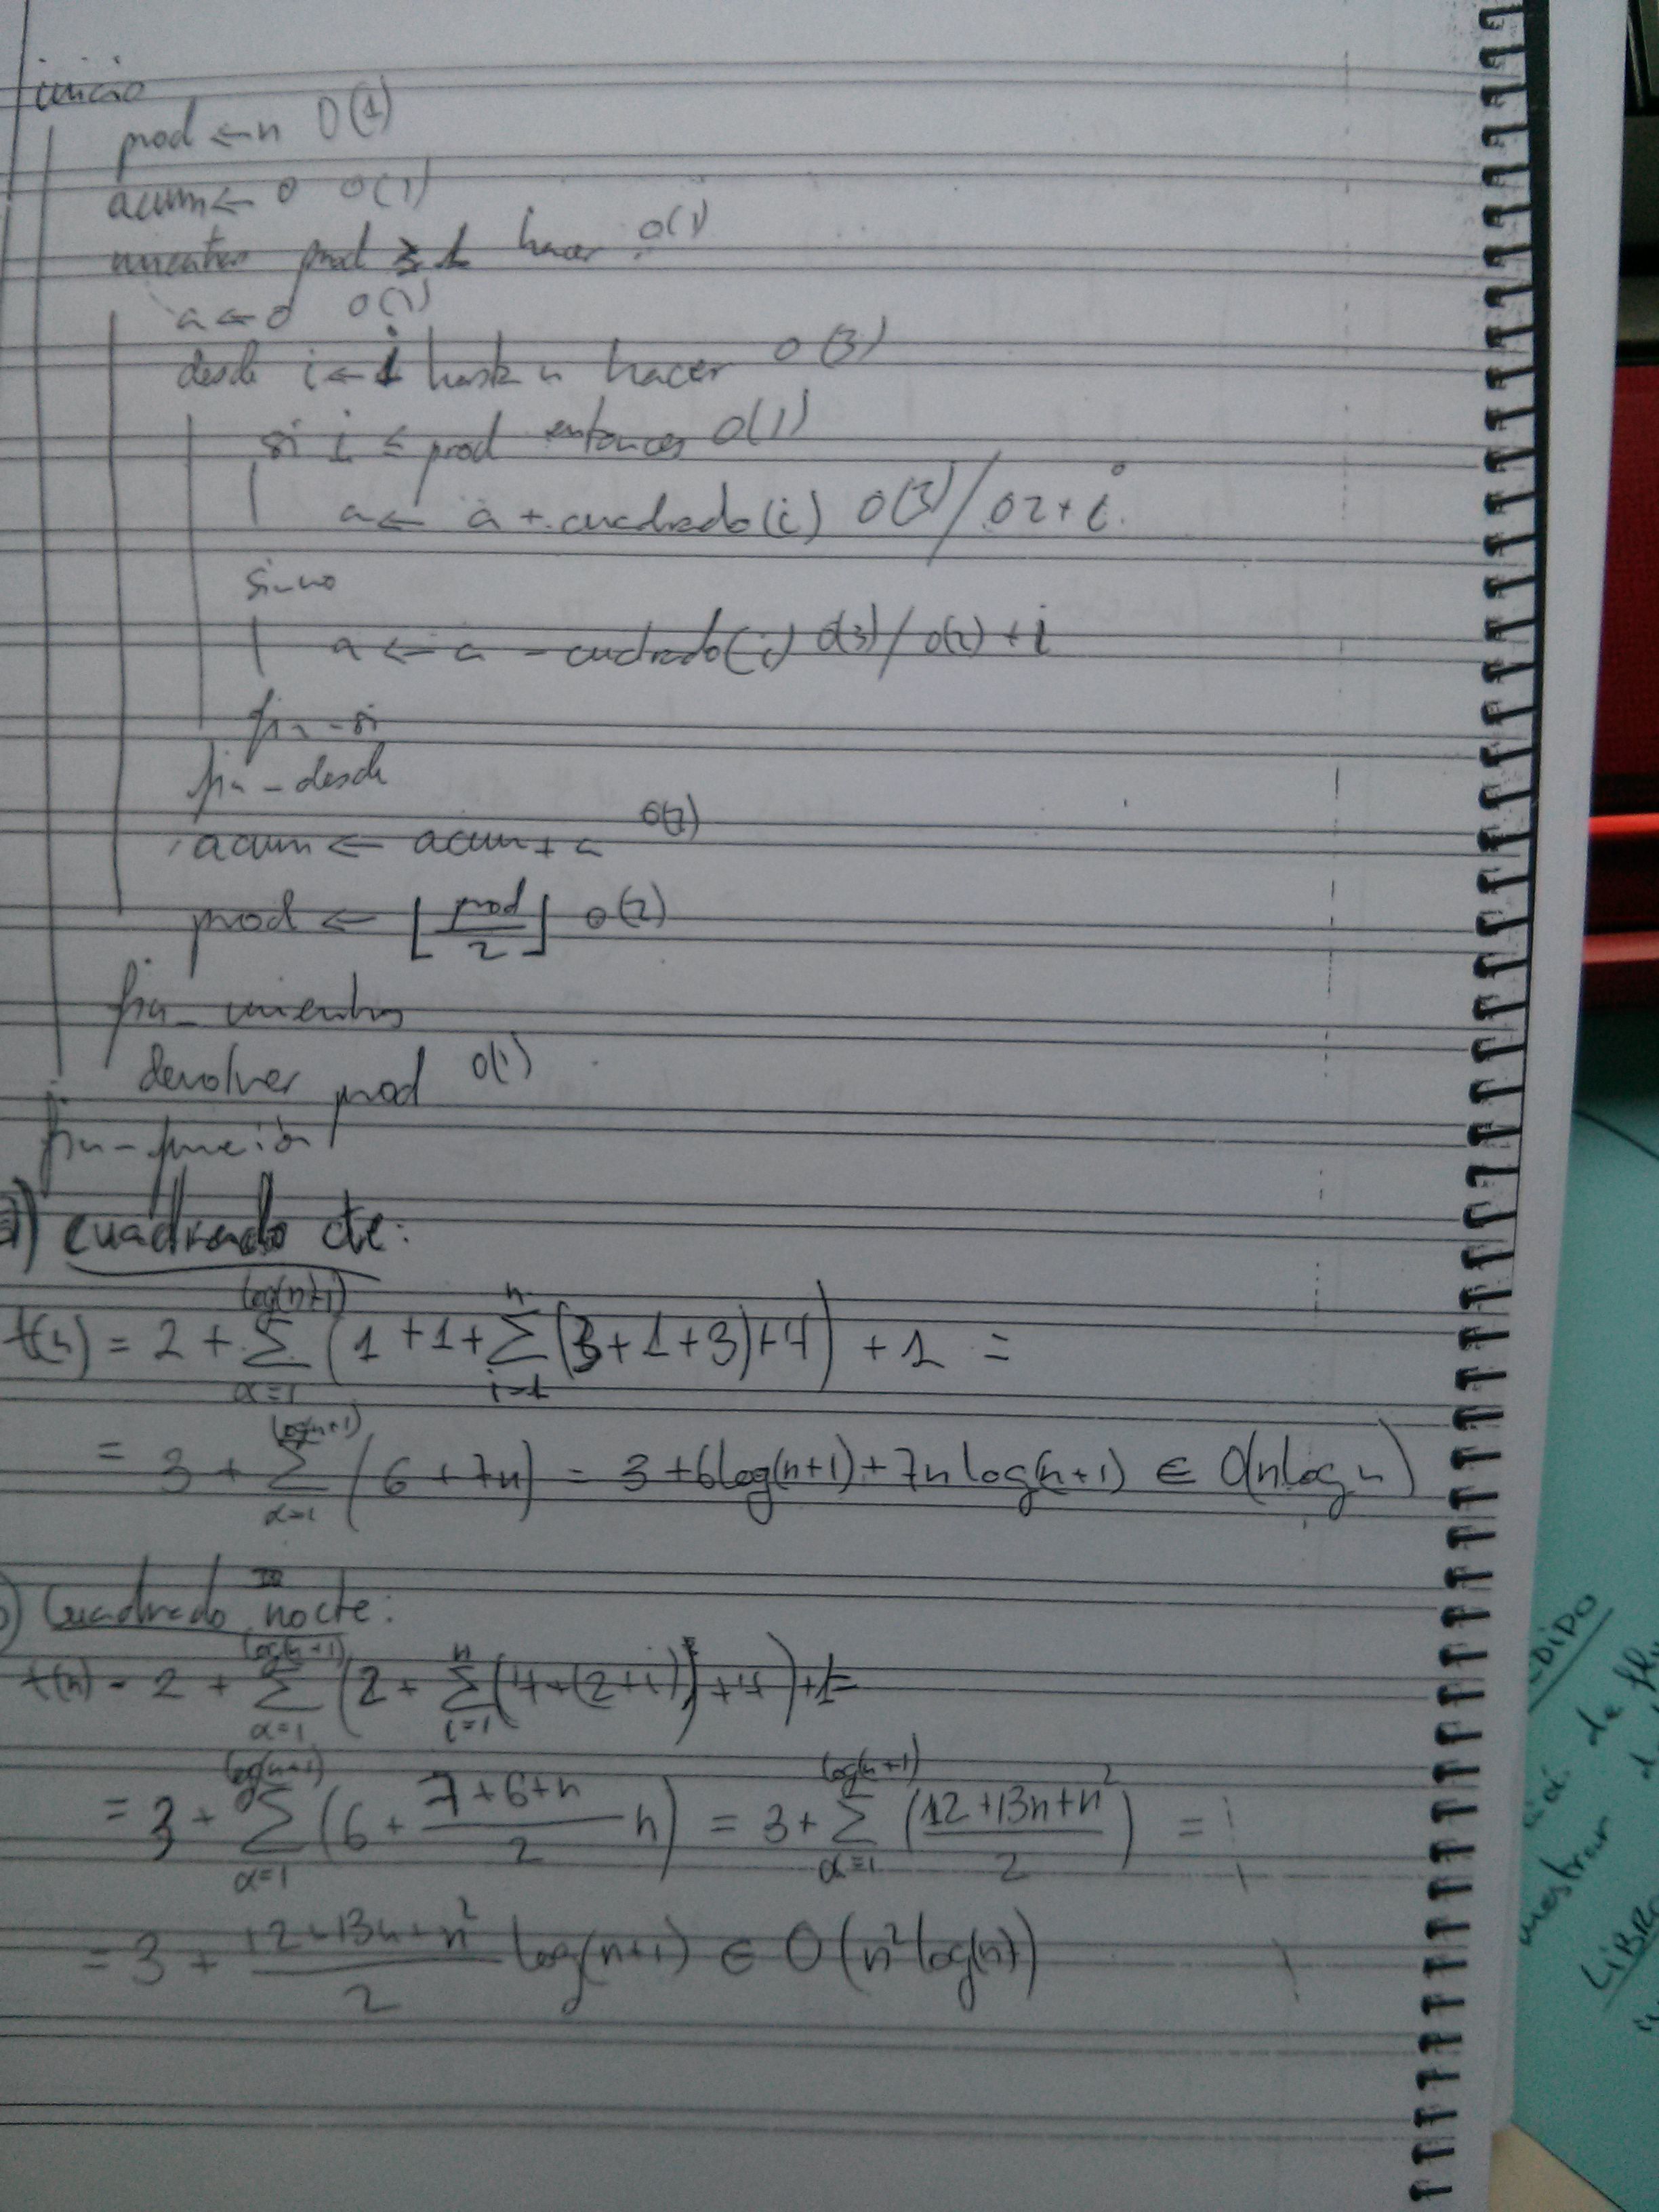 inicio
prod ← n O(1)
acum ← 0 O(1)
mientras prod ≥ 1 hacer O(1)
a ← 0 O(1)
desde i ← 1 hasta n hacer O(3)
si i ≤ prod entonces O(1)
a ← a + cuadrado(i) O(3)/O2+i
si-no
a ← a - cuadrado(i) O(3)/O(2)+i
fin-si
fin-desde
acum ← acum + a O(2)
prod ← ⌊prod/2⌋ O(2)
fin_mientras
devolver prod O(1)
fin-función
a) cuadrado cte:
t(n) = 2 + ∑_{α=1}^{log(n+1)} (1 + 1 + ∑_{i=1}^{n} (3+1+3)+4) + 1 =
= 3 + ∑_{α=1}^{log(n+1)} (6 + 7n) = 3 + 6log(n+1) + 7n log(n+1) ∈ O(n log n)
b) Cuadrado no cte:
t(n) = 2 + ∑_{α=1}^{log(n+1)} (2 + ∑_{i=1}^{n} (4+(2+i)) + 4) + 1 =
= 3 + ∑_{α=1}^{log(n+1)} (6 + (7+6+n)/2 n) = 3 + ∑_{α=1}^{log(n+1)} ((12+13n+n²)/2) =
= 3 + (12+13n+n²)/2 log(n+1) ∈ O(n² log(n))
DIDO
de
mostrar
LIBRO